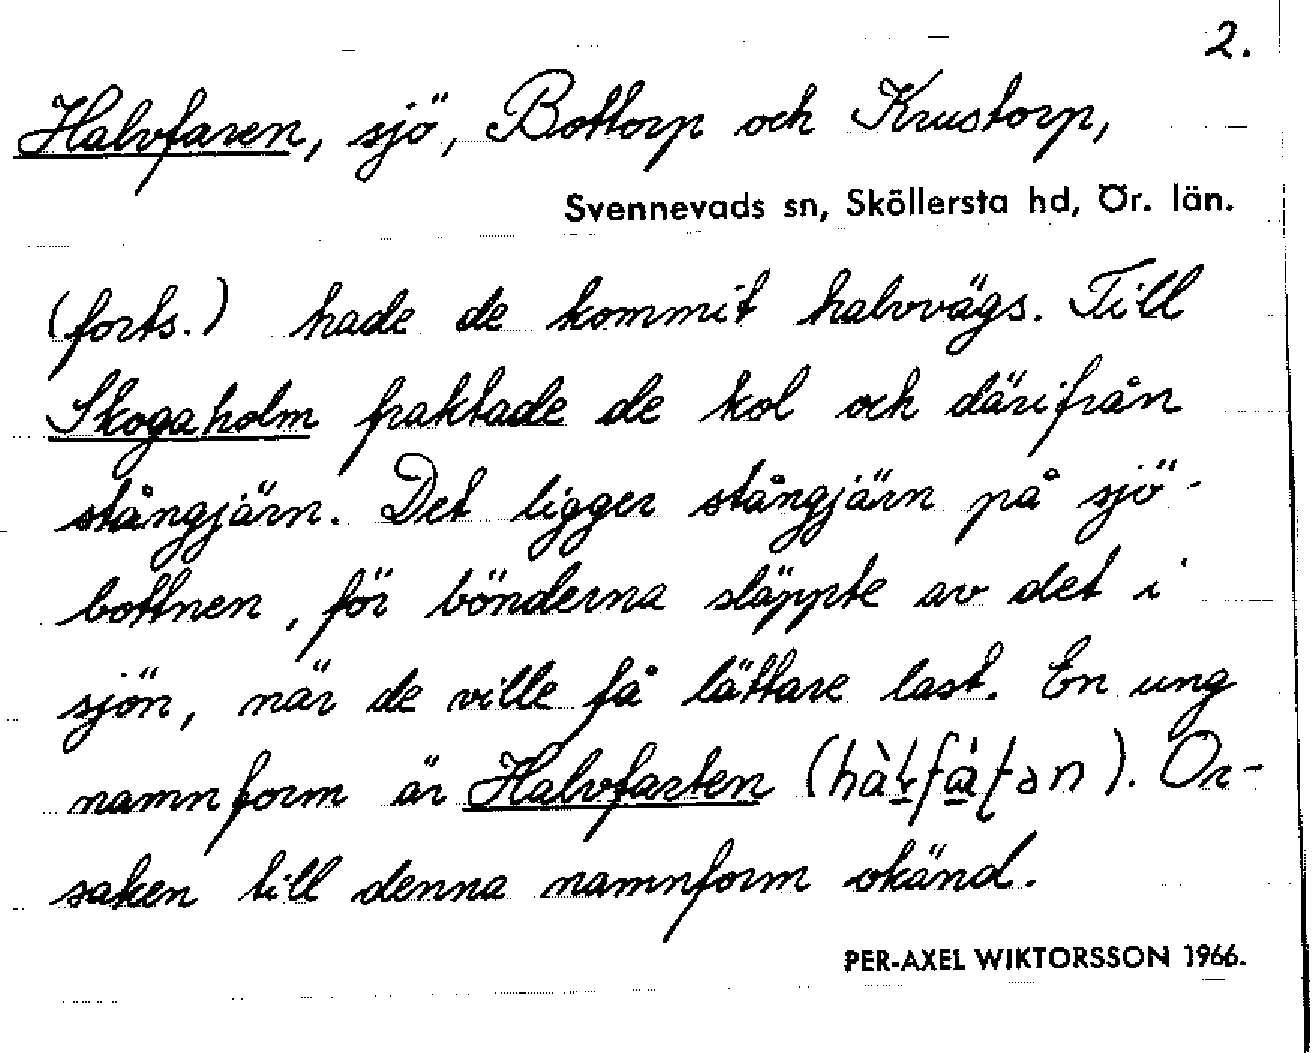 2.
Halvfaren, sjö, Bottorp och Krustorp,
Svennevads sn, Sköllersta hd, Ör. län.
(forts.) hade de kommit halvvägs. Till
Skogaholm fraktade de kol och därifrån
stångjärn. Det ligger stångjärn på sjö-
bottnen, för bönderna släppte av det i
sjön, när de ville få lättare last. En ung
namnform är Halvfarten ( ). Or-
saken till denna namnform okänd.
PER-AXEL WIKTORSSON 1966.